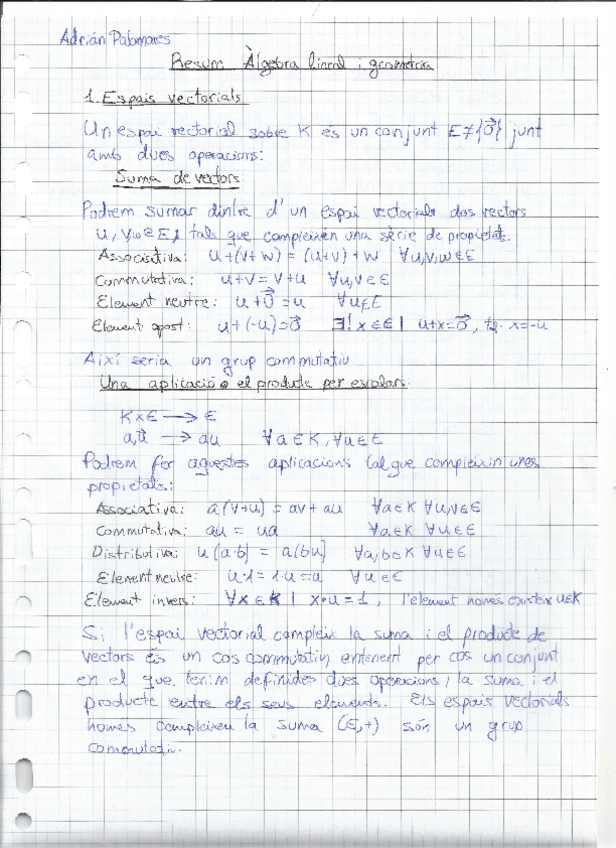 Adrián Palomares
Resum Àlgebra lineal i geometria
1. Espais vectorials
Un espai vectorial sobre K és un conjunt E≠{0⃗} junt
amb dues operacions:
Suma de vectors:
Podrem sumar dintre d'un espai vectorial dos vectors
u, v∈E, tals que compleixen una sèrie de propietats.
Associativa: u+(v+w) = (u+v)+w ∀u,v,w∈E
Commutativa: u+v = v+u ∀u,v∈E
Element neutre: u+0⃗ = u ∀u∈E
Element oposat: u+(-u)=0⃗ ∃! x∈E | u+x=0⃗, x=-u
Així seria un grup commutatiu
Una aplicació o el producte per escalars:
K×E → E
a,u⃗ → au ∀a∈K, ∀u∈E
Podrem fer aquestes aplicacions tal que compleixin unes
propietats:
Associativa: a(v+u) = av + au ∀a∈K ∀u,v∈E
Commutativa: au = ua ∀a∈K ∀u∈E
Distributiva: u(a·b) = a(bu) ∀a,b∈K ∀u∈E
Element neutre: u·1=1·u=u ∀u∈E
Element invers: ∀x∈K | x·u=1, l'element només existeix u∈K
Si l'espai vectorial compleix la suma i el producte de
vectors és un cos commutatiu, entenent per cos un conjunt
en el que tenim definides dues operacions, la suma i el
producte entre els seus elements. Els espais vectorials
només compleixen la suma (E,+) són un grup
commutatiu.